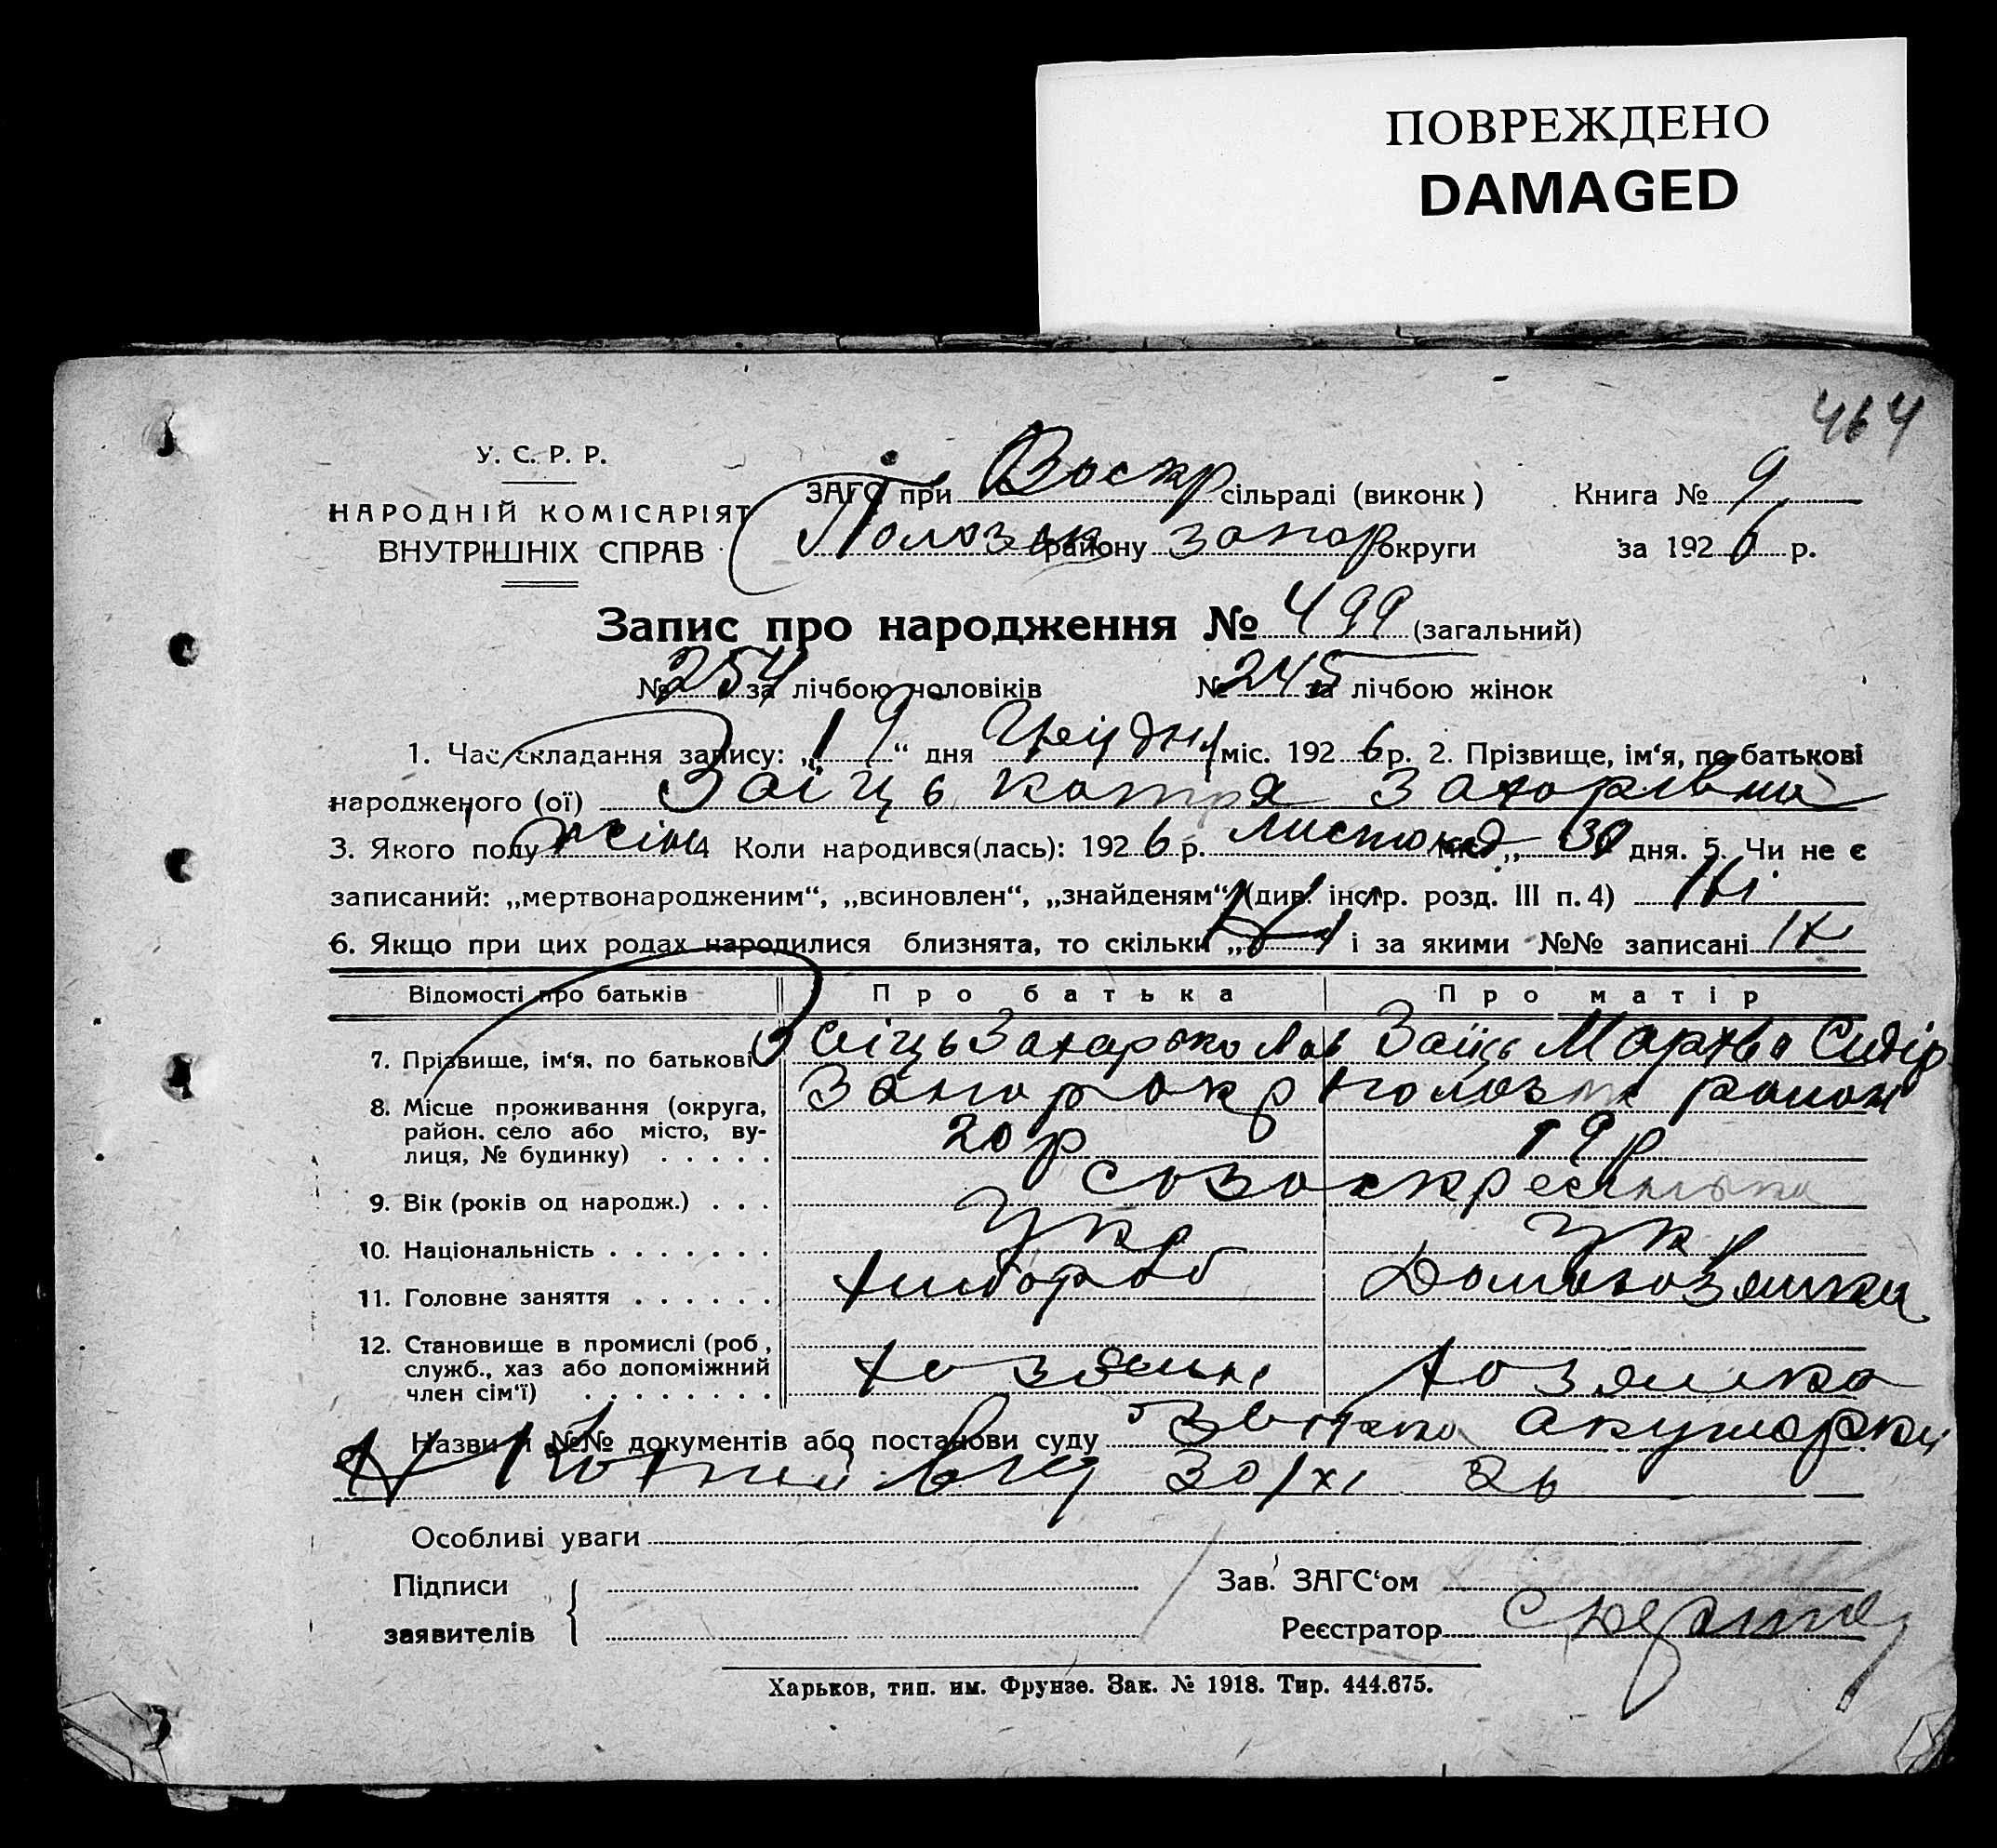 ПОВРЕЖДЕНО
DAMAGED
464
У. С. Р. Р.
НАРОДНІЙ КОМІСАРІЯТ
ВНУТРІШНІХ СПРАВ
ЗАГС при Воскр сільраді (виконк) Книга № 9
Полозк району Запор округи за 1926 р.
Запис про народження № 499 (загальний)
№ 254 за лічбою чоловіків № 245 за лічбою жінок
1. Час складання запису: „19“ дня Грудня міс. 1926 р. 2. Прізвище, ім‘я, по батькові
народженого (ої) Заіць Катря Захорівна
3. Якого полу жіноч 4 Коли народився(лась): 1926 р. листопад міс. „30 дня. 5. Чи не є
записаний: „мертвонародженим“, „всиновлен“, „знайденям“ (див. інстр. розд. III п. 4) Ні
6. Якщо при цих родах народилися близнята, то скільки „ і за якими №№ записані
Відомості про батьків Про батька Про матір
7. Прізвище, ім‘я, по батькові Заіць Захарько Заіць Мархва Сидір
8. Місце проживання (округа, район, село або місто, ву-
лиця, № будинку) Запор окр Полозк район
20 р 19 р
9. Вік (років од народж.)
10. Національність Укр Укр
11. Головне заняття хлібороб Домохозяйка
12. Становище в промислі (роб, служб., хаз або допоміжний
член сім‘ї) хозяин хозяйка
Назви й №№ документів або постанови суду акушерки
30/XI 26
Особливі уваги
Підписи Зав. ЗАГС‘ом
заявителів Реєстратор
Харьков, тип. им. Фрунзе. Зак. № 1918. Тир. 444.675.